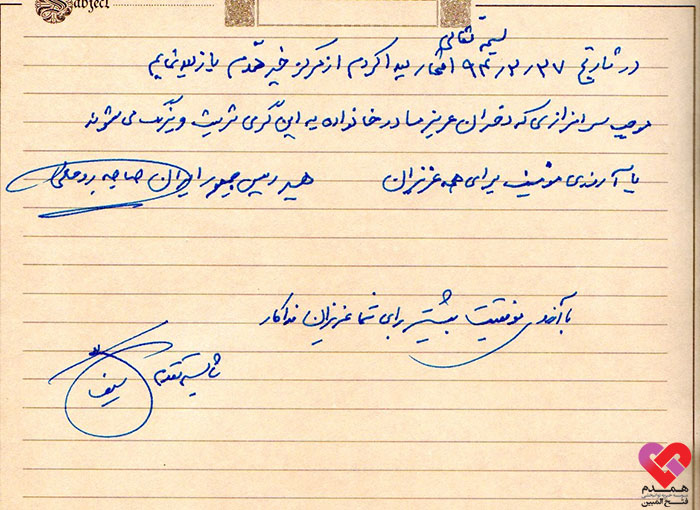 Subject
بسمه تعالی
در تاریخ ۹۴٫۲٫۲۷ افتخار پیدا کردم از مرکز خیر همدم بازدید نمایم
موجب سرافرازی که دختران عزیز ما در خانواده به این گرمی تربیت و بزرگ می شوند
با آرزوی موفقیت برای همه عزیزان
همسر رییس جمهور ایران صاحبه روحانی
با آرزوی موفقیت بیشتر برای شما عزیزان فداکار
همدم
موسسه خیریه توانبخشی
فتح المبین